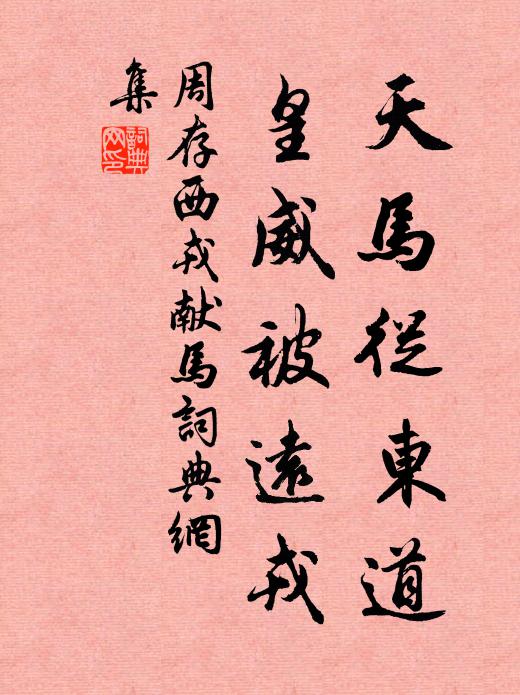 天馬從東道
皇威被遠戎
周存西戎献馬詞典網
集
詞典網印